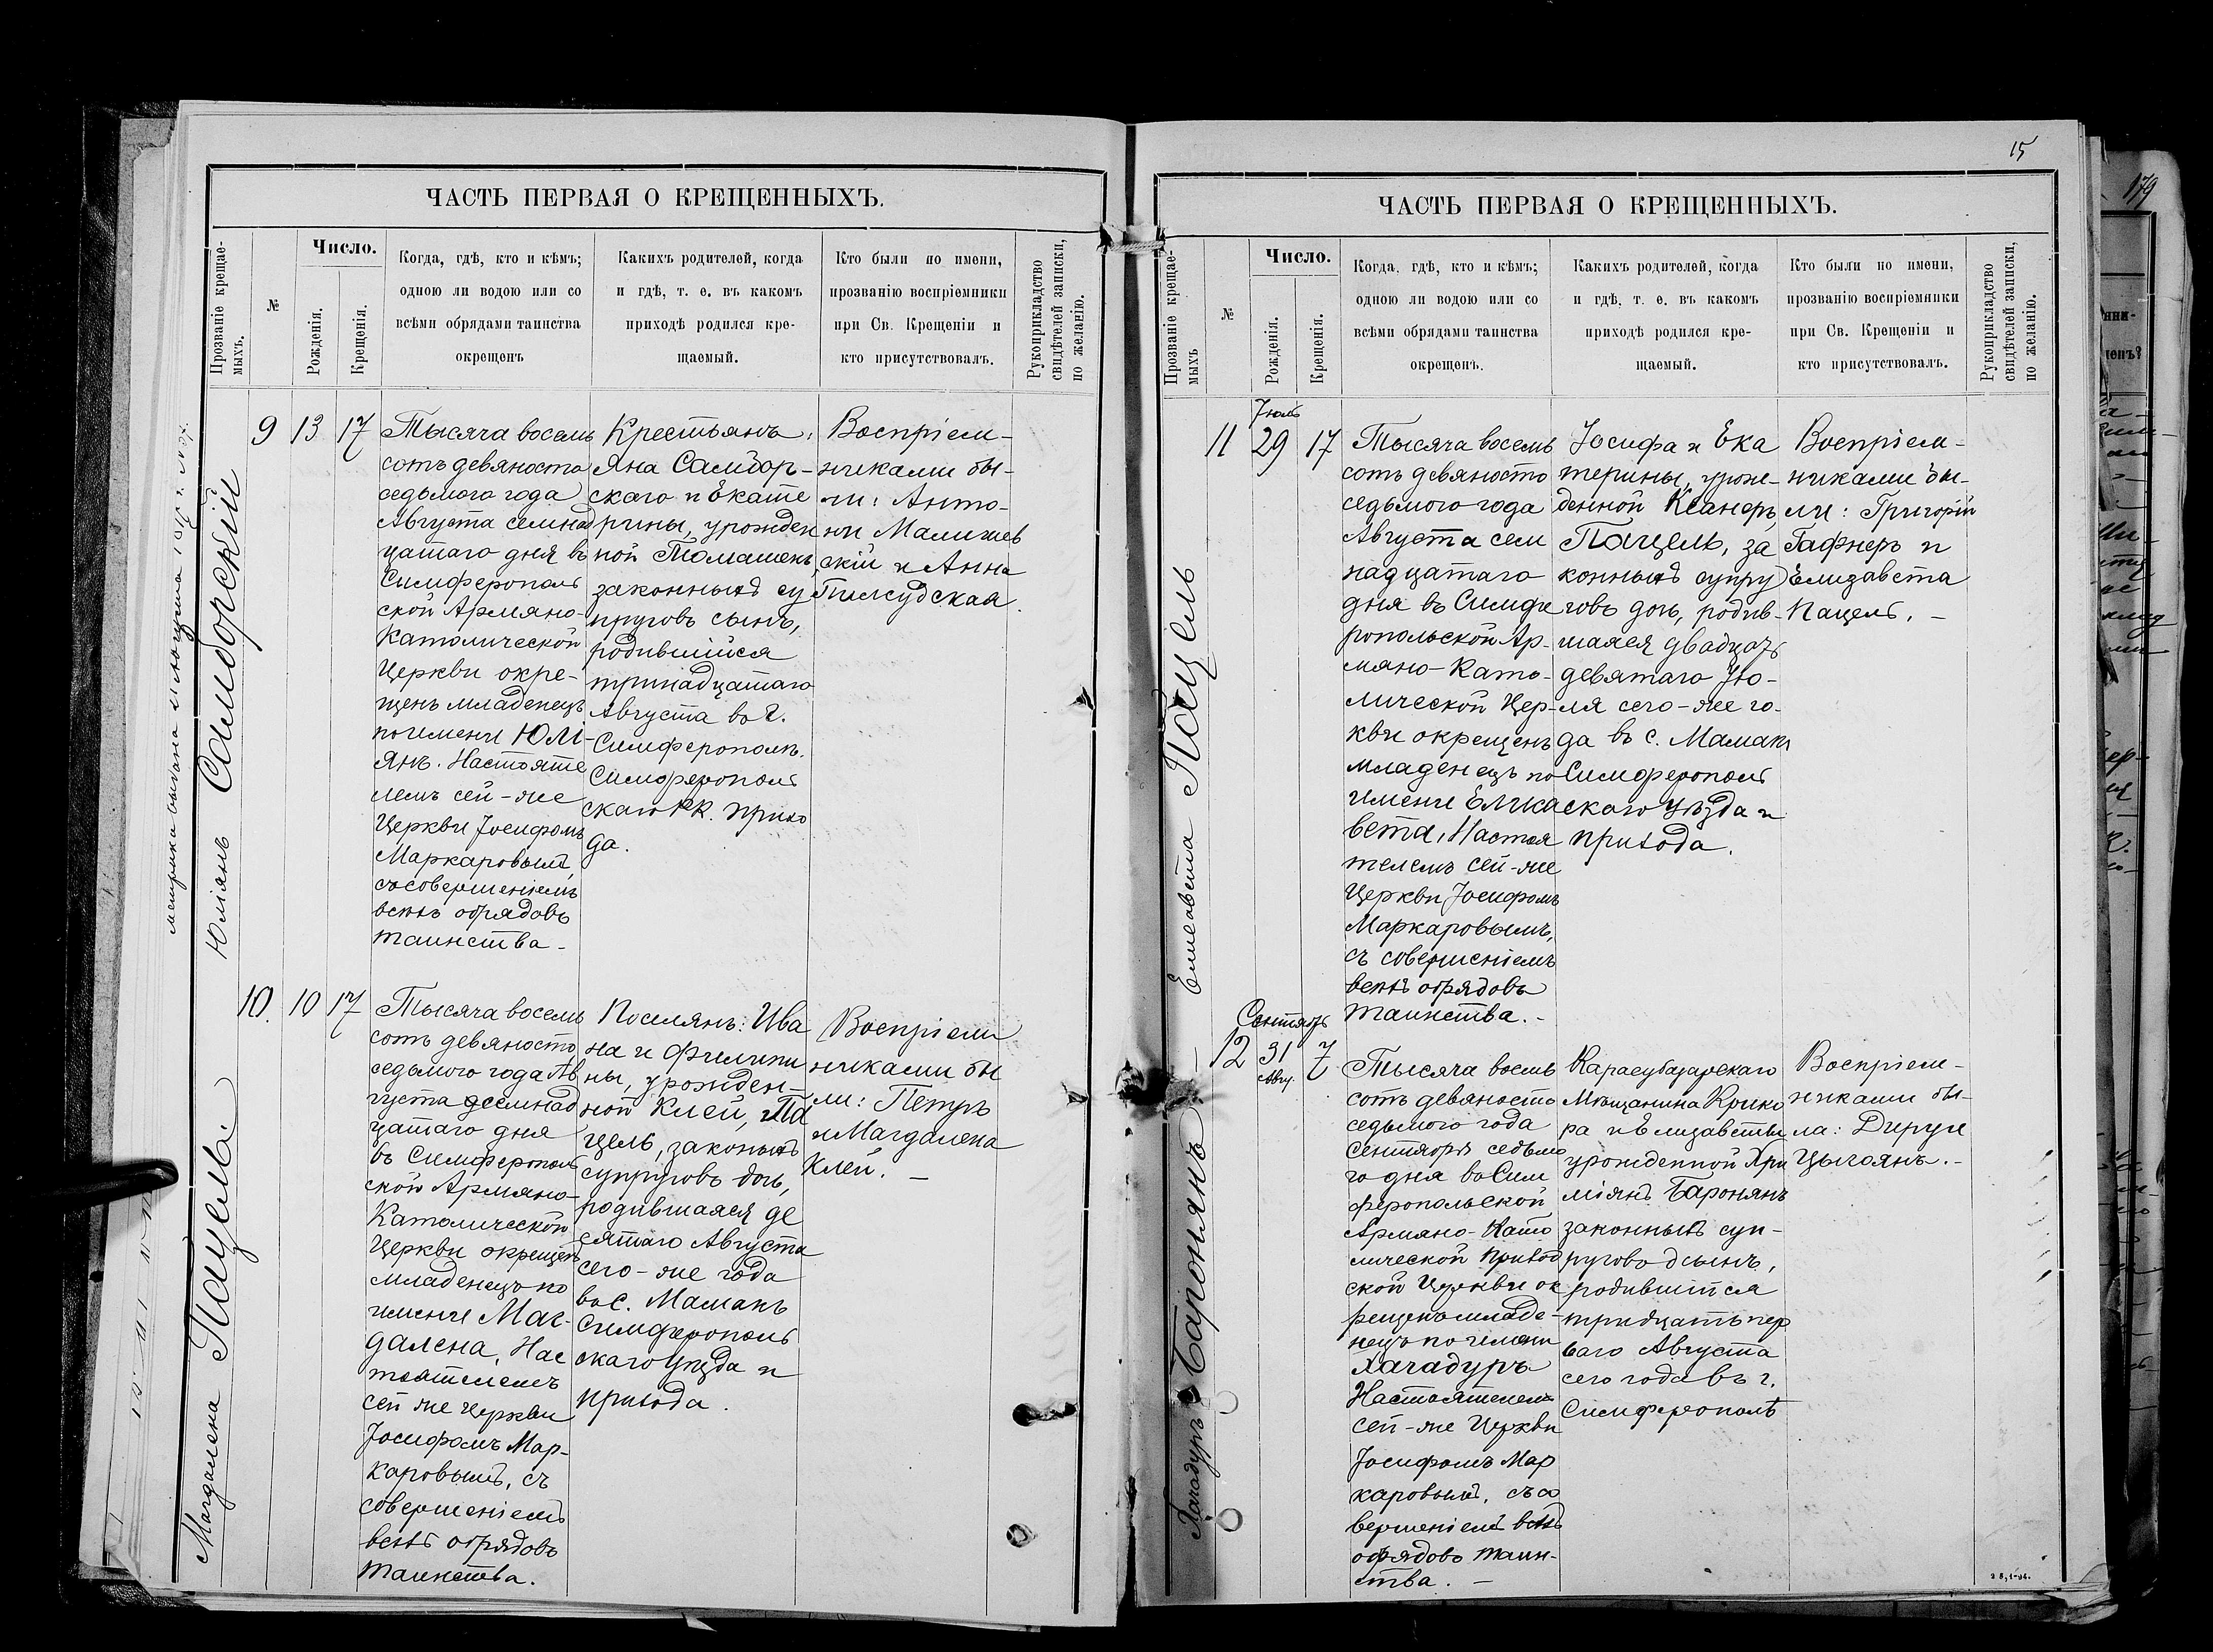 ЧАСТЬ ПЕРВАЯ О КРЕЩЕННЫХЪ.
Прозваніе крещае-
мыхъ.
№
Число.
Рожденія.
Крещенія.
Когда, гдѣ, кто и кѣмъ;
одною ли водою или со
всѣми обрядами таинства
окрещенъ
Какихъ родителей, когда
и гдѣ, т. е. въ какомъ
приходѣ родился кре-
щаемый.
Кто были по имени,
прозванію воспріемники
при Св. Крещеніи и
кто присутствовалъ.
Рукоприкладство
свидѣтелей записки,
по желанію.
Юліянъ Самборскій
9 13 17
Тысяча восемь
сотъ девяносто
седьмого года
Августа семнад
цатаго дня въ
Симферополь
ской Армяно-
Католической
Церкви окре-
щенъ младенецъ
по имени Юлі-
янъ. Настояте
лемъ сей-же
Церкви Іосифомъ
Маркаровымъ,
съ совершеніемъ
всѣхъ обрядовъ
таинства-
Крестьянъ:
Яна Самбор-
скаго и Екате
рины, урожден
ной Томашекъ,
законныхъ су
пруговъ сынъ,
родившійся
тринадцатаго
Августа въ г.
Симферополѣ.
Симферополь
скаго РК. прихо
да.
Воспріем-
никами бы-
ли: Анто-
ни Малишев
скій и Анна
Пилсудская.
Магдалена Пацель
10. 10 17
Тысяча восемь
сотъ девяносто
седьмого года Ав
густа семнад
цатаго дня
въ Симферополь
ской Армяно-
Католической
Церкви окрещенъ
младенецъ по
имени Маг-
далена, Нас
тоятелемъ
сей же Церкви
Іосифомъ Мар-
каровымъ, съ
совершеніемъ
всѣхъ обрядовъ
таинства.
Поселянъ: Ива
на и Филипи
ны, урожден-
ной Клей, Па
цель, законныхъ
супруговъ дочь,
родившаяся де
сятаго Августа
сего-же года
въ с. Мамакъ
Симферополь
скаго уѣзда и
прихода.
Воспріем
никами бы
ли: Петръ
и Магдалена
Клей. -
15
ЧАСТЬ ПЕРВАЯ О КРЕЩЕННЫХЪ.
Прозваніе крещае-
мыхъ
№
Число.
Рожденія.
Крещенія.
Когда, гдѣ, кто и кѣмъ;
одною ли водою или со
всѣми обрядами таинства
окрещенъ.
Какихъ родителей, когда
и гдѣ, т. е. въ какомъ
приходѣ родился кре-
щаемый.
Кто были по имени,
прозванію воспріемники
при Св. Крещеніи и
кто присутствовалъ.
Рукоприкладство
свидѣтелей записки,
по желанію.
Елисавета Пацель
Іюль
11 29 17
Тысяча восемь
сотъ девяносто
седьмого года
Августа сем
надцатаго
дня въ Симфе
ропольской Ар-
мяно-Като-
лической Цер-
кви окрещенъ
младенецъ по
имени Елиса
вета, Настоя
телемъ сей-же
Церкви Іосифомъ
Маркаровымъ,
съ совершеніемъ
всѣхъ обрядовъ
таинства.-
Іосифа и Ека
терины, урож-
денной Ксанеръ,
Пацель, за
конныхъ супру
говъ дочь, родив-
шаяся двадцать
девятаго Ію-
ля сего-же го-
да въ с. Мамакъ
Симферополь
скаго уѣзда и
прихода.
Воспріем-
никами бы-
ли: Григорій
Гафнеръ и
Елизавета
Пацель. -
Хачадуръ Баронянъ
Сентябрь
12 31 7
Авгу.
Тысяча восемь
сотъ девяносто
седьмого года
Сентября седьмо
го дня въ Сим
феропольской
Армяно-Като
лической приход
ской Церкви ок
рещенъ младе-
нецъ по имени
Хачадуръ
Настоятелемъ
сей-же Церкви
Іосифомъ Мар
каровымъ, съ со
вершеніемъ всѣхъ
обрядовъ таин-
ства. -
Карасубазарскаго
Мѣщанина Крико
ра и Елизаветы
урожденной Хри
міянъ Баронянъ
законныхъ суп-
руговъ сынъ,
родившійся
тридцать пер
ваго Августа
сего года въ г.
Симферополѣ
Воспріем-
никами бы-
ла: Дируги
Цыгоянъ.-
179